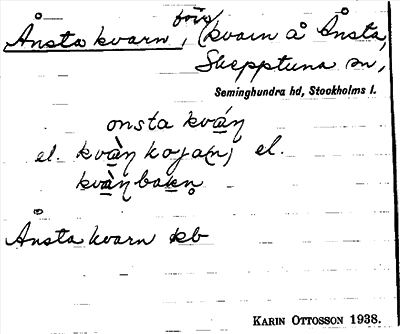 förr
Ånsta kvarn, (kvarn å Ånsta,
Skepptuna sn,
Seminghundra hd, Stockholms l.
onsta kvá̱ṇ
el. kvà̱ṇ koja(n) el.
kvà̱ṇbakṇ
Ånsta kvarn kb
KARIN OTTOSSON 1938.